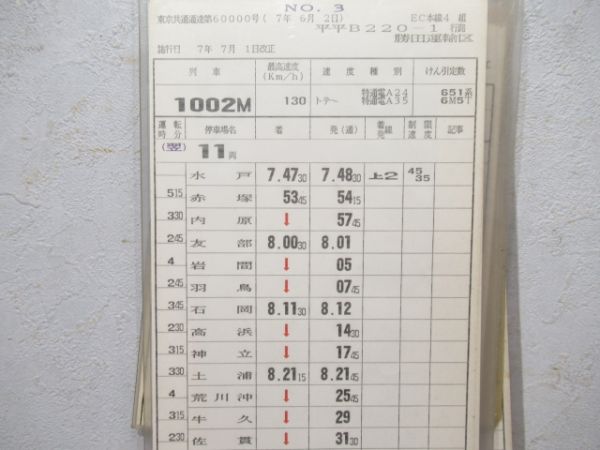 NO. 3
東京共通運達第60000号( 7年 6月 2日)
EC本線4 組
平平B220-1 行路
施行日 7年 7月 1日改正
列車 最高速度(Km/h) 速度種別 けん引定数
1002M 130 トテ～ 特通電A24 特通電A35 651系 6M5T
運転時分 停車場名 着 発(通) 着線発線 制限速度 記事
(翌) 11両
水戸 7.47 30 7.48 30 上2 45 35
515 赤塚 53 45 54 15
330 内原 ↓ 57 45
245 友部 8.00 30 8.01
4 岩間 ↓ 05
245 羽鳥 ↓ 07 45
345 石岡 8.11 30 8.12
230 高浜 ↓ 14 30
315 神立 ↓ 17 45
330 土浦 8.21 15 8.21 45
4 荒川沖 ↓ 25 45
315 牛久 ↓ 29
230 佐貫 ↓ 31 30